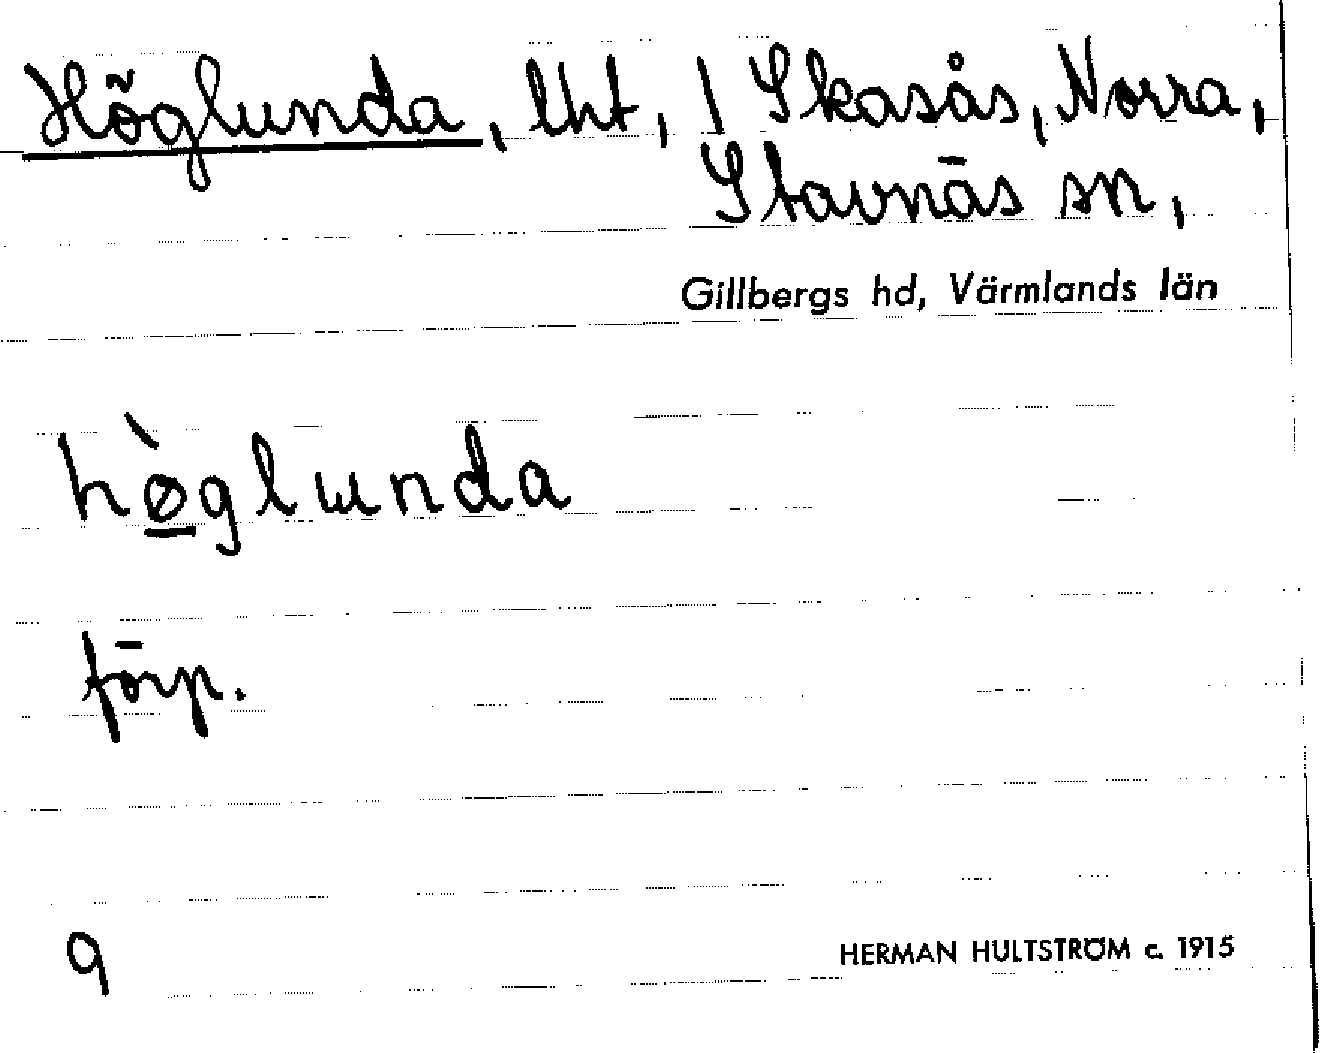 Höglunda, lht, 1 Skasås, Norra,
Stavnäs sn,
Gillbergs hd, Värmlands län
hø̲̀glɯnda
förp.
9
HERMAN HULTSTRÖM c. 1915